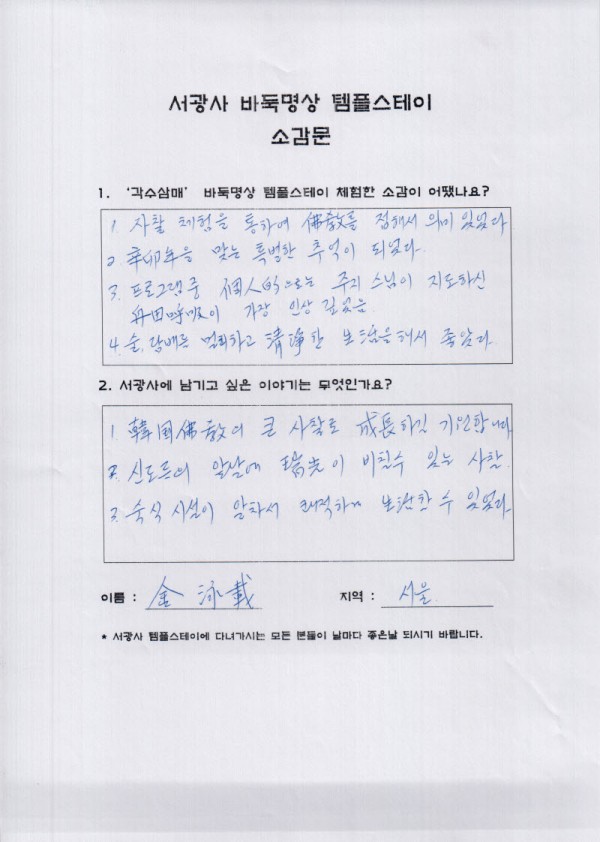 서광사 바둑명상 템플스테이
소감문
1. '각수삼매' 바둑명상 템플스테이 체험한 소감이 어땠나요?
1. 사찰 체험을 통하여 佛敎를 접해서 의미 있었다
2. 辛卯年을 맞는 특별한 추억이 되었다.
3. 프로그램중 個人的으로는 주지 스님이 지도하신
丹田呼吸이 가장 인상 깊었음
4. 술, 담배를 멀리하고 清淨한 生活을 해서 좋았다.
2. 서광사에 남기고 싶은 이야기는 무엇인가요?
1. 韓国佛敎의 큰 사찰로 成長하길 기원합니다
2. 신도들의 앞날에 瑞光이 비칠수 있는 사찰.
3. 숙식 시설이 알차서 쾌적하게 生活할 수 있었다.
이름 : 金 泳 載 지역 : 서울
* 서광사 템플스테이에 다녀가시는 모든 분들이 날마다 좋은날 되시기 바랍니다.